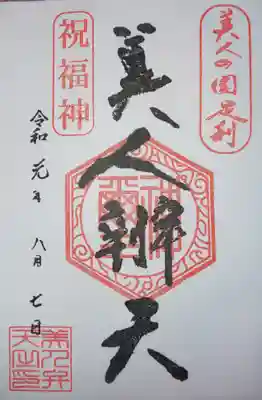 美人の国足利
美人辨天
祝福神
令和元年
八月七日
美人弁
天之印